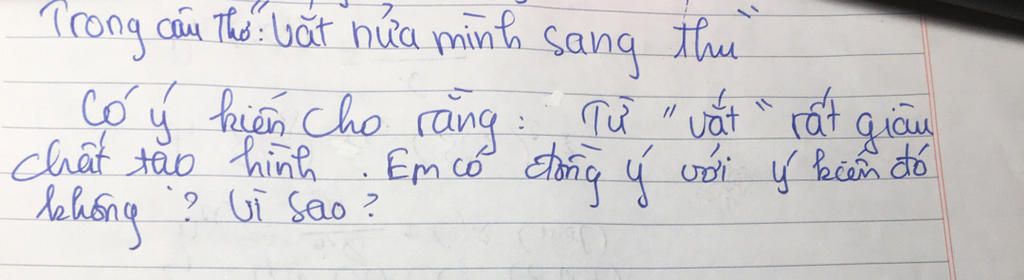 Trong câu thơ: "Vắt nửa mình sang thu"
Có ý kiến cho rằng: Từ "vắt" rất giàu
chất tạo hình. Em có đồng ý với ý kiến đó
không? Vì sao?